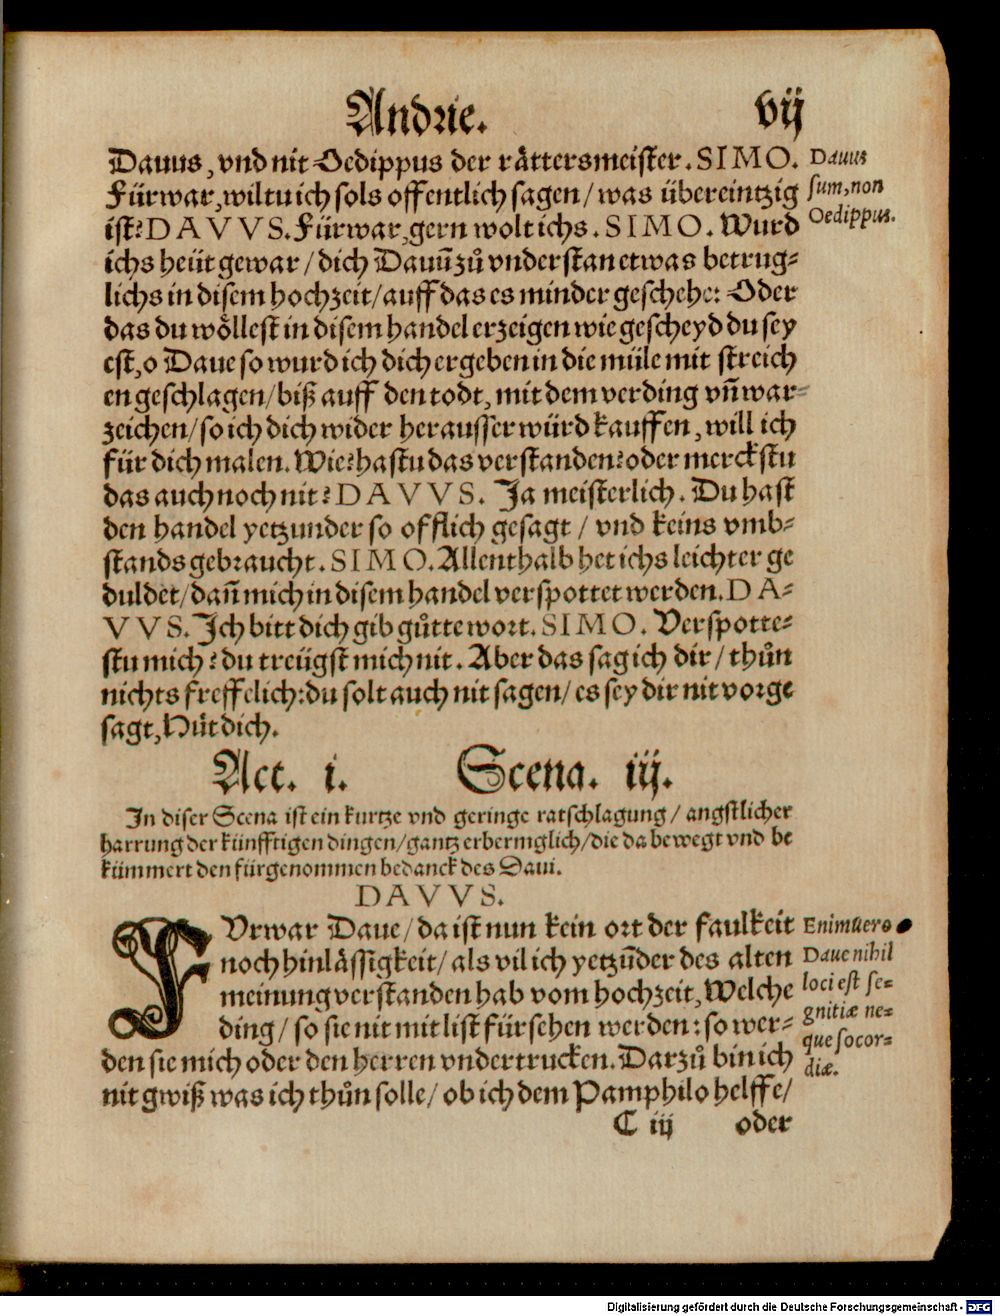 Andrie. vij
Dauus, vnd nit Oedippus der rättersmeister. SIMO. Dauus
Fürwar, wiltu ich sols offentlich sagen/ was übereintzig sum, non
ist? DAVVS. Fürwar, gern wolt ichs. SIMO. Wurd Oedippus.
ichs heüt gewar/ dich Dauũ zů vnderstan etwas betrug-
lichs in disem hochzeit/ auff das es minder geschehe: Oder
das du wöllest in disem handel erzeigen wie gescheyd du sey
est, o Daue so wurd ich dich ergeben in die müle mit streich
en geschlagen/ biß auff den todt, mit dem verding vñ war-
zeichen/ so ich dich wider herausser würd kauffen, will ich
für dich malen. Wie? hastu das verstanden? oder merckstu
das auch noch nit? DAVVS. Ja meisterlich. Du hast
den handel yetzunder so offlich gesagt/ vnd keins vmb-
stands gebraucht. SIMO. Allenthalb het ichs leichter ge
duldet/ dañ mich in disem handel verspottet werden. DA-
VVS. Ich bitt dich gib gůtte wort. SIMO. Verspotte-
stu mich? du treügst mich nit. Aber das sag ich dir/ thůn
nichts freffelich: du solt auch nit sagen/ es sey dir nit vorge
sagt, Hüt dich.
Act. i. Scena. iij.
In diser Scena ist ein kurtze vnd geringe ratschlagung/ angstlicher
harrung der künfftigen dingen/ gantz erbermglich/ die da bewegt vnd be
kümmert den fürgenommen bedanck des Daui.
DAVVS.
FVrwar Daue/ da ist nun kein ort der faulkeit Enimuero
noch hinlässigkeit/ als vil ich yetzũder des alten Daue nihil
meinung verstanden hab vom hochzeit, Welche loci est se-
ding/ so sie nit mit list fürsehen werden: so wer- gnitiæ ne-
den sie mich oder den herren vndertrucken. Darzů bin ich que socor-
nit gwiß was ich thůn solle/ ob ich dem Pamphilo helffe/ diæ.
C iij oder
Digitalisierung gefördert durch die Deutsche Forschungsgemeinschaft - DFG